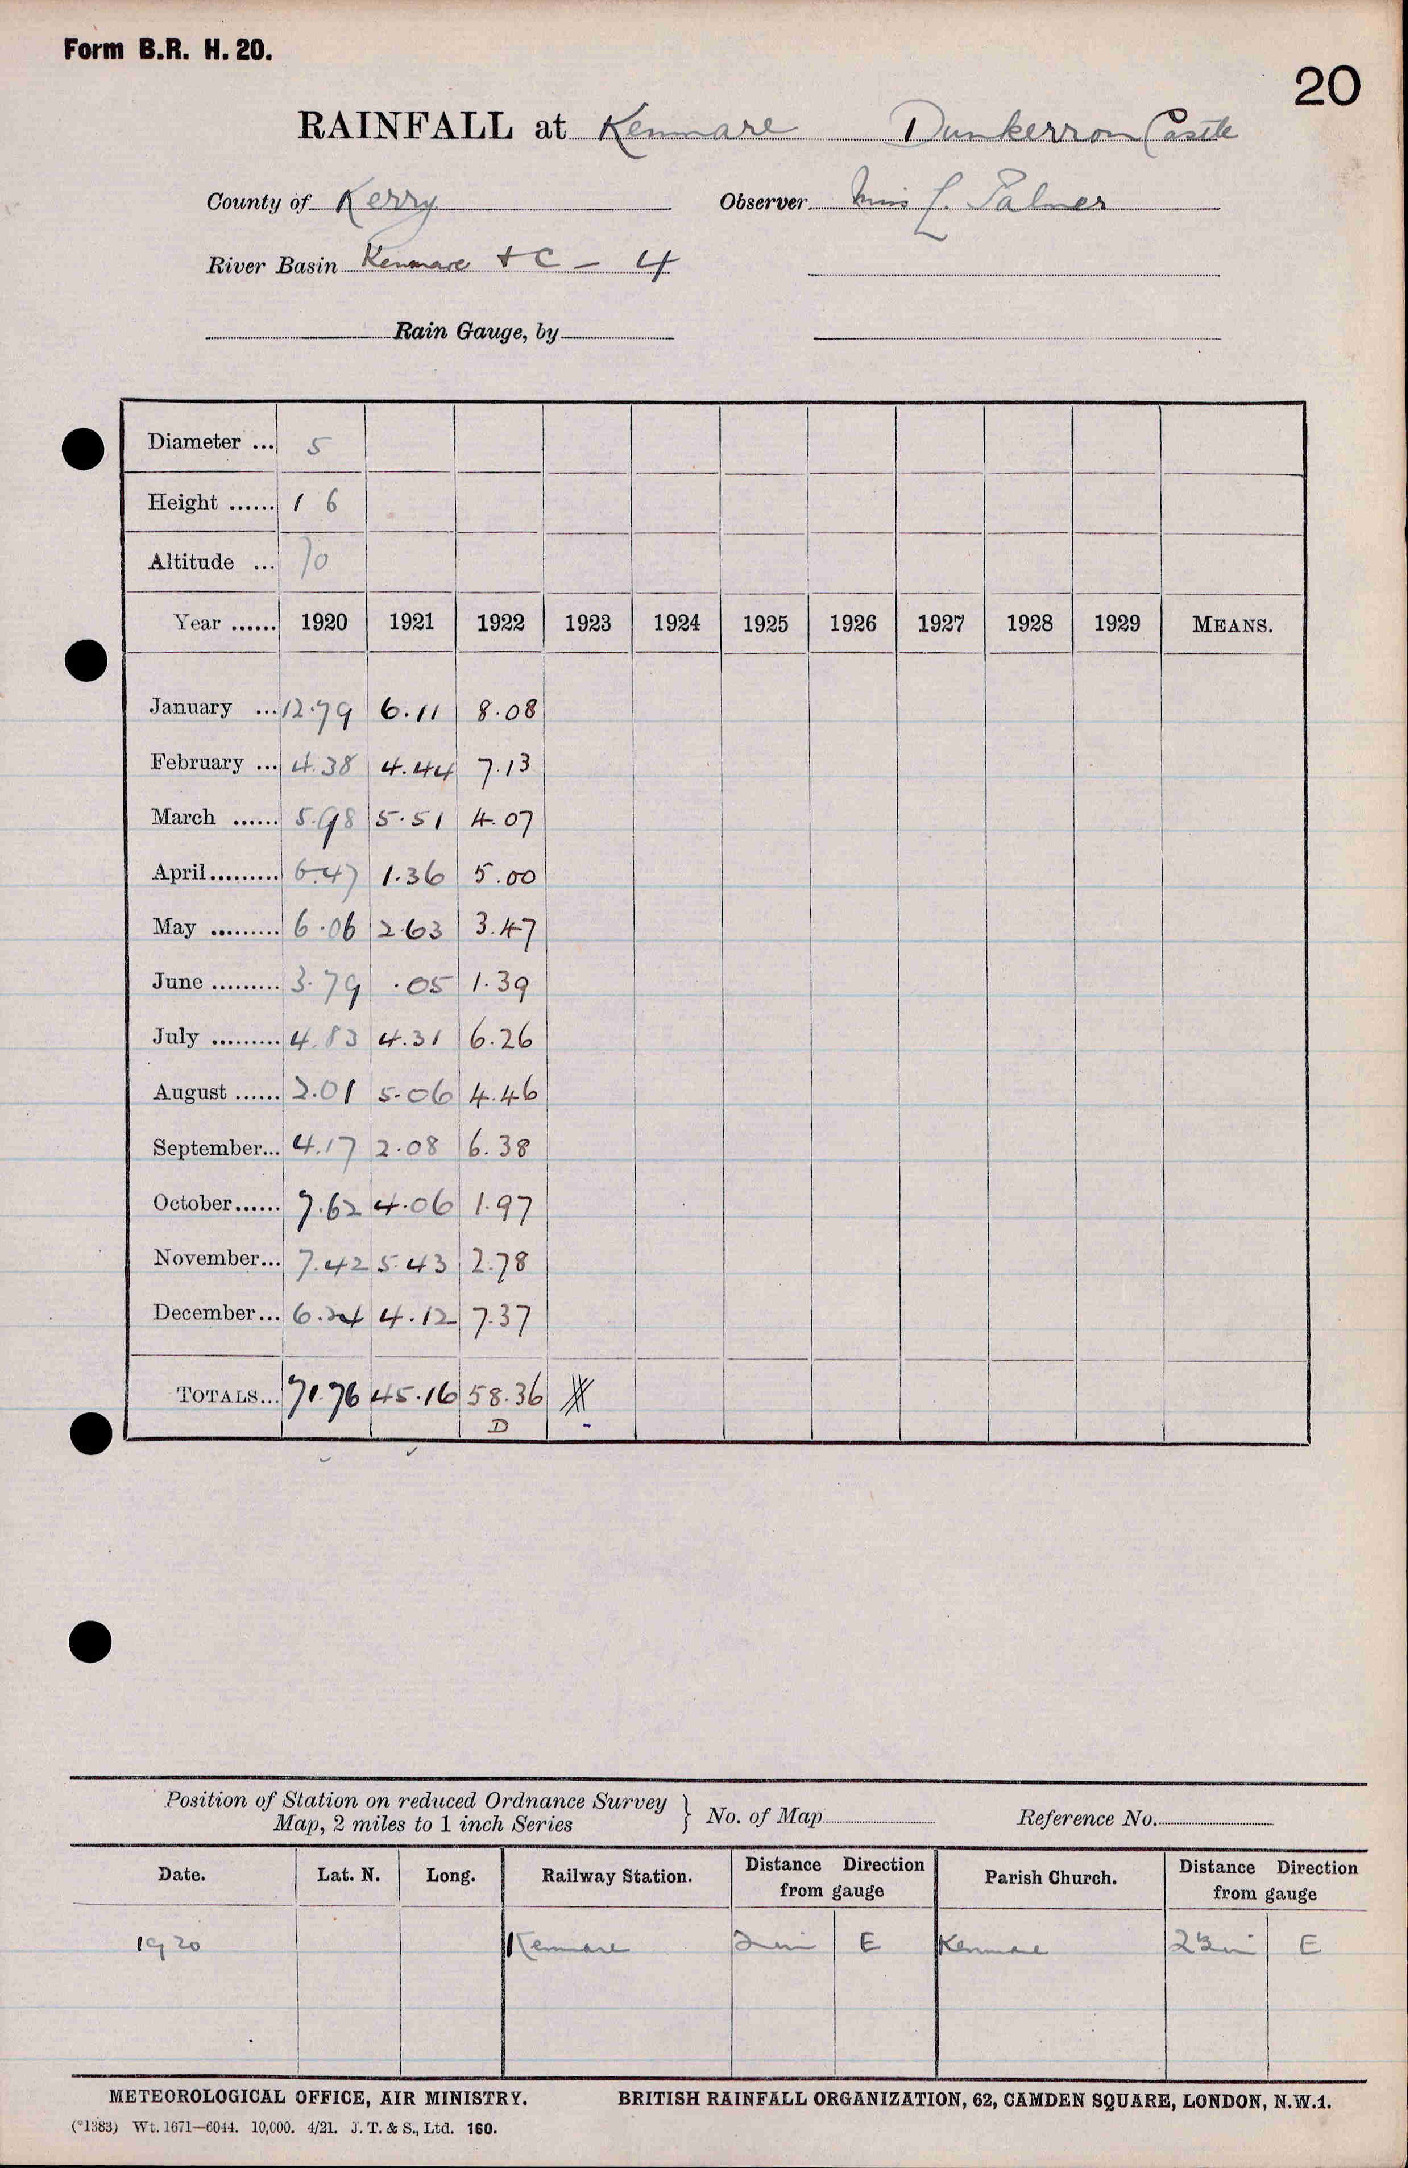 Form B.R. H. 20.
20
RAINFALL at Kenmare Dunkerron Castle
County of Kerry Observer Miss L. Palmer
River Basin Kenmare + C - 4
Rain Gauge, by
Diameter ... 5
Height ...... 1 6
Altitude ... 70
Year ...... 1920 1921 1922 1923 1924 1925 1926 1927 1928 1929 MEANS.
January ... 12.79 6.11 8.08
February ... 4.38 4.44 7.13
March ...... 5.98 5.51 4.07
April......... 6.47 1.36 5.00
May ......... 6.06 2.63 3.47
June ......... 3.79 .05 1.39
July ......... 4.83 4.31 6.26
August ...... 2.01 5.06 4.46
September... 4.17 2.08 6.38
October...... 7.62 4.06 1.97
November... 7.42 5.43 2.78
December... 6.24 4.12 7.37
TOTALS... 71.76 45.16 58.36
D
Position of Station on reduced Ordnance Survey
Map, 2 miles to 1 inch Series } No. of Map Reference No.
Date. Lat. N. Long. Railway Station. Distance Direction from gauge Parish Church. Distance Direction from gauge
1920 Kenmare 2 mi E Kenmare mi E
METEOROLOGICAL OFFICE, AIR MINISTRY. BRITISH RAINFALL ORGANIZATION, 62, CAMDEN SQUARE, LONDON, N.W.1.
(*1383) Wt. 1671—6044. 10,000. 4/21. J. T. & S., Ltd. 160.